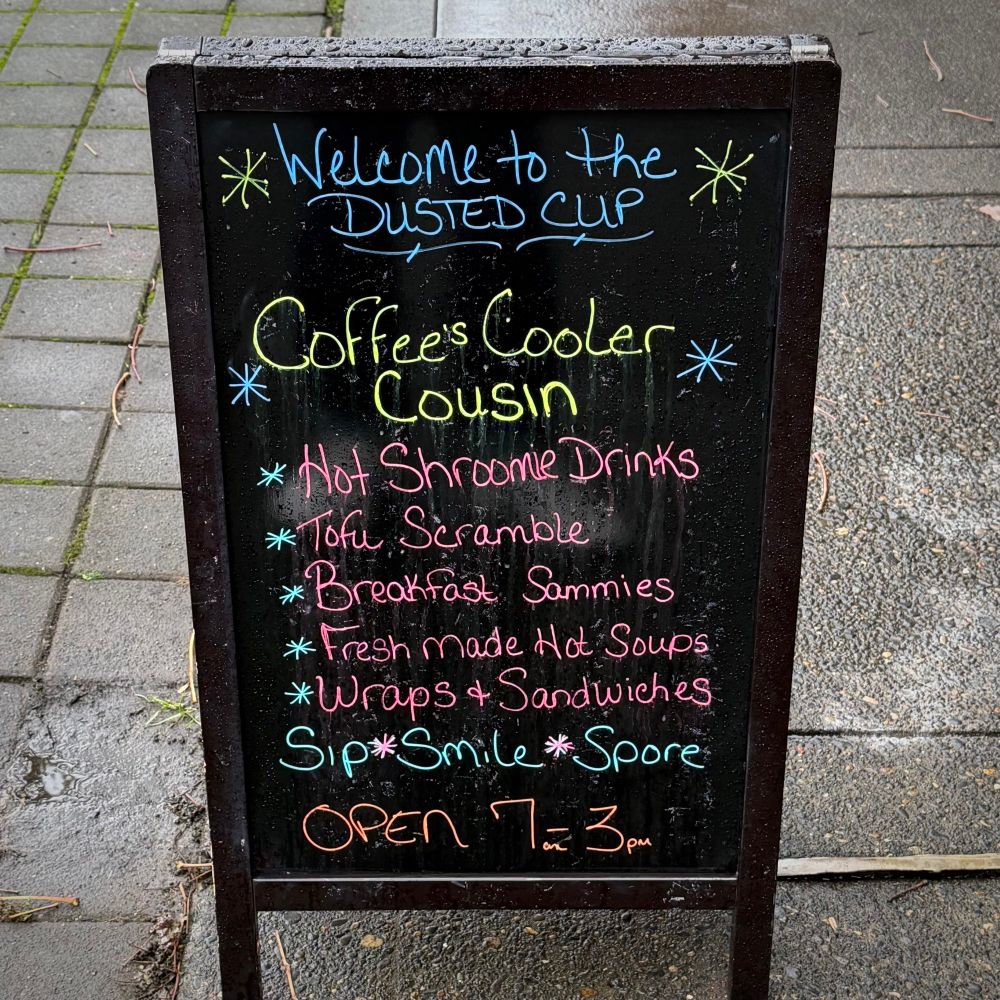 Welcome to the
DUSTED CUP
Coffee's Cooler
Cousin
* Hot Shroomie Drinks
* Tofu Scramble
* Breakfast Sammies
* Fresh made Hot Soups
* Wraps & Sandwiches
Sip * Smile * Spore
OPEN 7am - 3pm